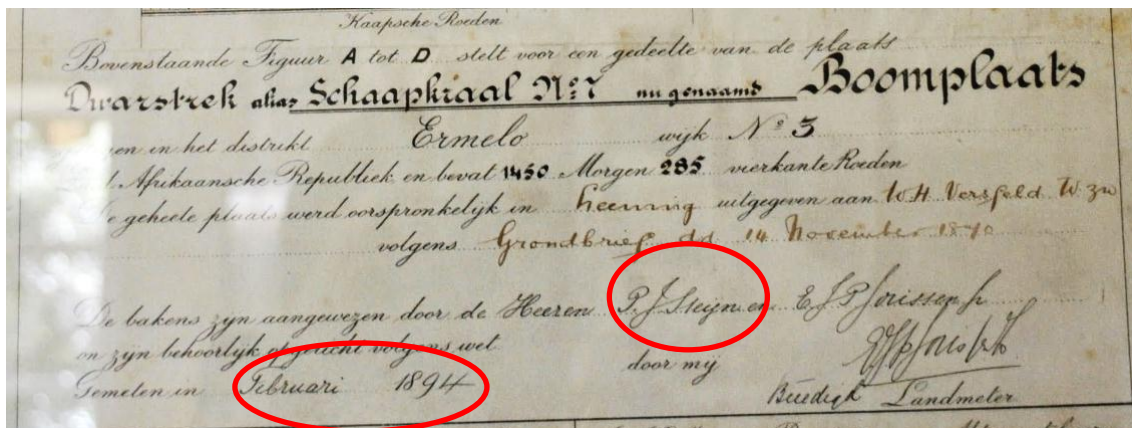 Kaapsche Roeden
Bovenstaande Figuur A tot D stelt voor een gedeelte van de plaats
Dwarstrek alias Schaapkraal No 7 nu genaamd Boomplaats
in het distrikt Ermelo wijk No 3
Afrikaansche Republiek en bevat 1450 Morgen 285 vierkante Roeden
De geheele plaats werd oorspronkelijk in Leening uitgegeven aan W.H. Versfeld W. zn
volgens Grondbrief dd 14 November
De bakens zyn aangewezen door de Heeren P. J. Steijn en E. J. P. Jorissen Jr
en zyn behoorlyk opgericht volgens wet
door mij
Gemeten in Februari 1894
Landmeter